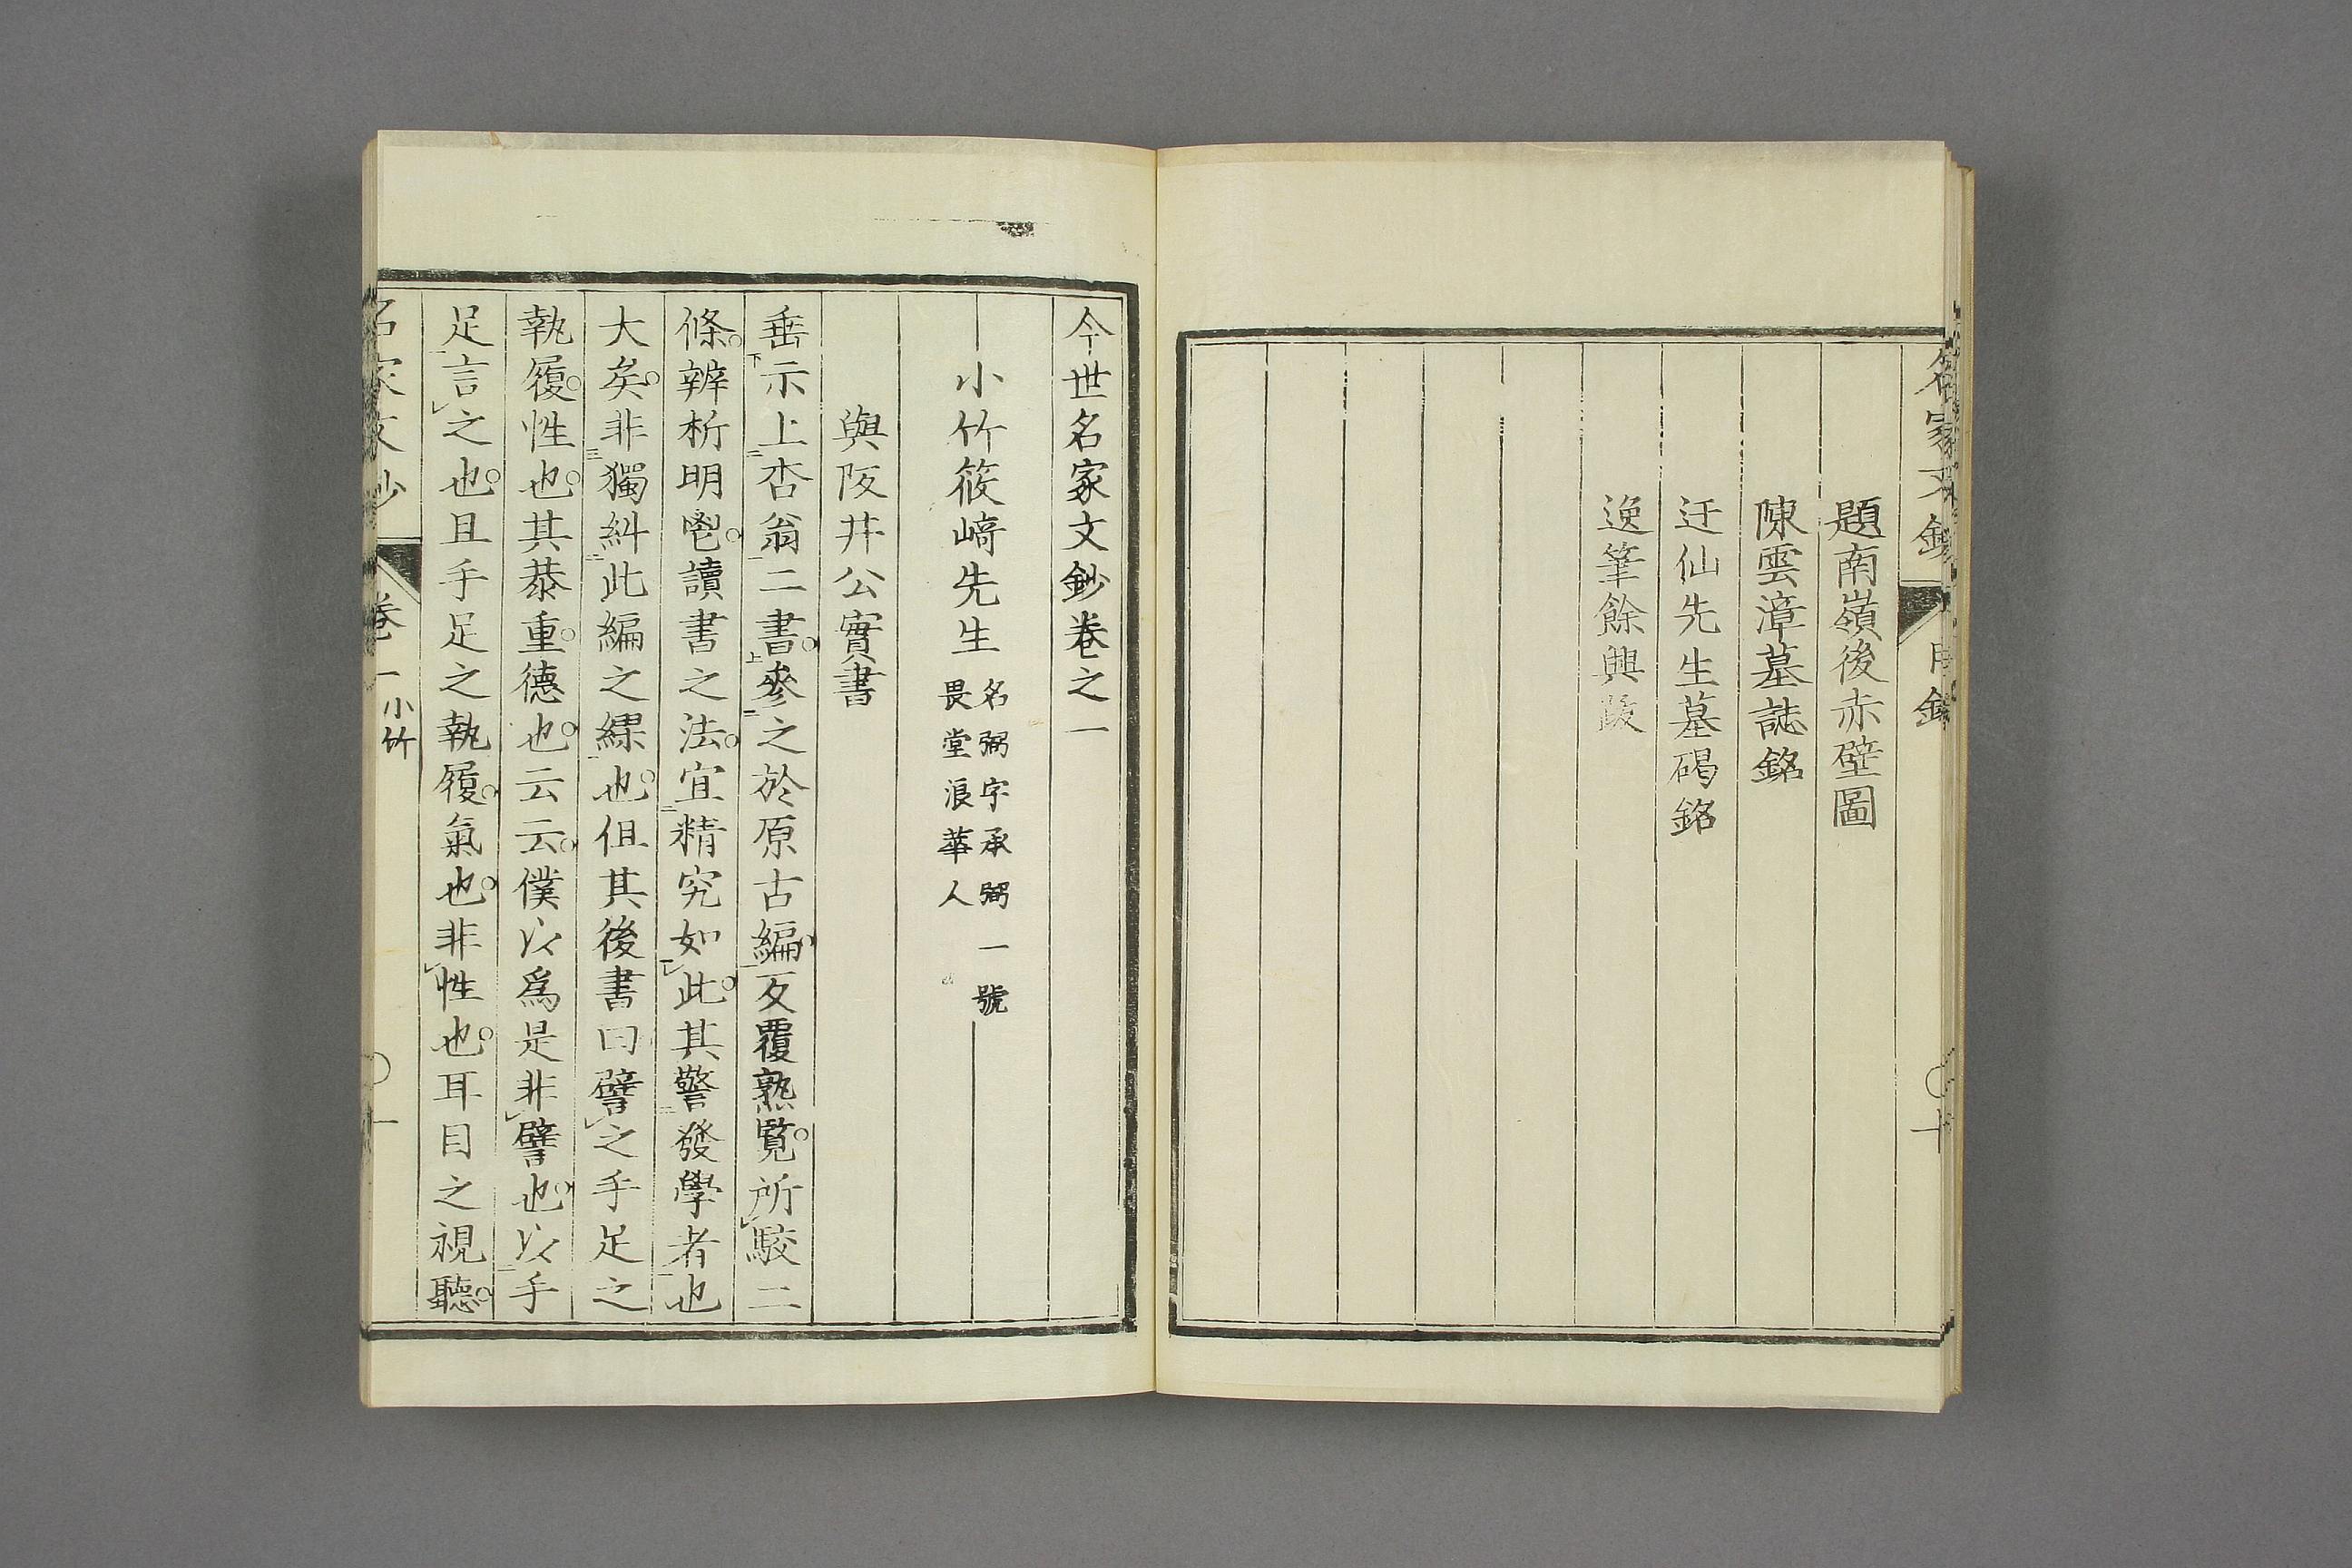 名家文鈔 目錄 ○十
題南嶺後赤壁圖
陳雲漳墓誌銘
迂仙先生墓碣銘
逸筆餘興跋
今世名家文鈔卷之一
小竹筱﨑先生 名弼字承弼一號
畏堂浪華人
與阪井公實書
垂示上杏翁二書。參之於原古編。反覆熟覽。所駮二
條。辨析明鬯。讀書之法。宜精究如此。其警發學者也
大矣。非獨糾此編之繆也。但其後書曰譬之手足之
執履。性也。其恭重。德也。云云。僕以爲是非譬也。以手
足言之也。且手足之執履。氣也。非性也。耳目之視聽。
名家文鈔 卷一 小竹 ○一